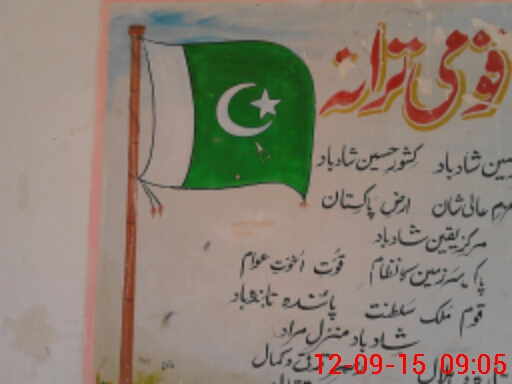 قومی ترانہ
شاد باد کشورِ حسین شاد باد
عالی شان ارضِ پاکستان
مرکزِ یقین شاد باد
پاک سرزمین کا نظام قوّتِ اُخوّتِ عوام
قوم ملک سلطنت پائندہ تابندہ باد
شاد باد منزلِ مراد
و کمال
12-09-15 09:05